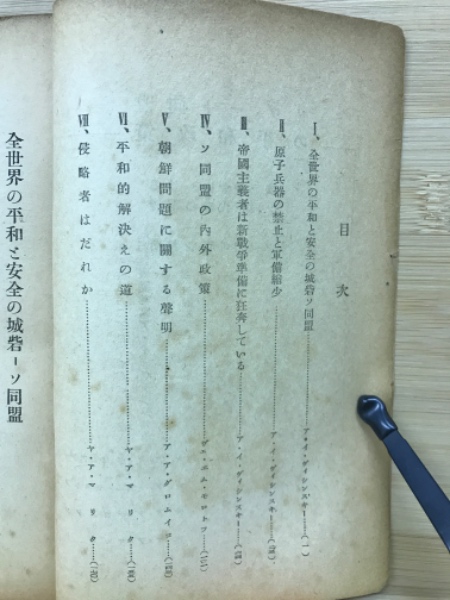 目次
Ⅰ、全世界の平和と安全の城砦ソ同盟……ア・イ・ヴィシンスキー……(一)
Ⅱ、原子兵器の禁止と軍備縮少……ア・イ・ヴィシンスキー……
Ⅲ、帝國主義者は新戰爭準備に狂奔している……ア・イ・ヴィシンスキー……
Ⅳ、ソ同盟の內外政策……ヴェ・エム・モロトフ……
Ⅴ、朝鮮問題に關する聲明……ア・ア・グロムイコ……
Ⅵ、平和的解決えの道……ヤ・ア・マリク……
Ⅶ、侵略者はだれか……ヤ・ア・マリク……
全世界の平和と安全の城砦ーソ同盟